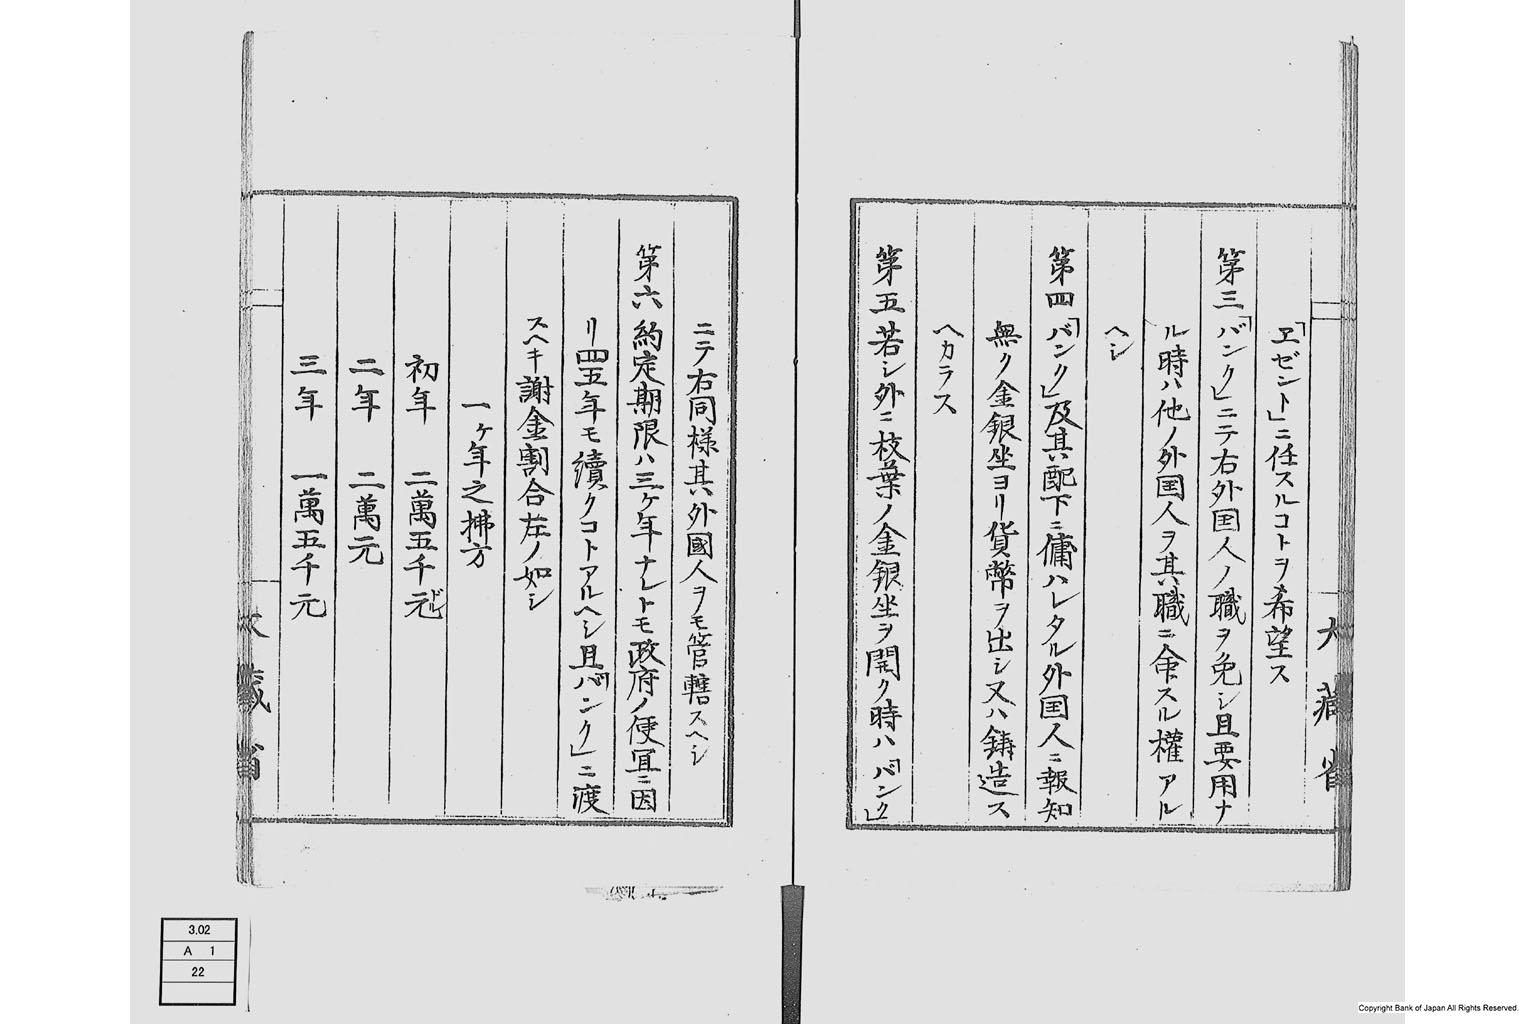 「ヱゼント」ニ任スルコトヲ希望ス
第三「バンク」ニテ右外国人ノ職ヲ免シ且要用ナ
ル時ハ他ノ外国人ヲ其職ニ命スル權アル
ヘシ
第四「バンク」及其配下ニ傭ハレタル外国人ニ報知
無ク金銀坐ヨリ貨幣ヲ出シ又ハ鋳造ス
ヘカラス
第五若シ外ニ枝葉ノ金銀坐ヲ開ク時ハ「バンク」
大藏省
ニテ右同様其外國人ヲモ管轄スヘシ
第六約定期限ハ三ケ年ナレトモ政府ノ便宜ニ因
リ四五年モ續クコトアルヘシ且「バンク」ニ渡
スヘキ謝金割合左ノ如シ
一ケ年之拂方
初年 二萬五千元
二年 二萬元
三年 一萬五千元
大藏省
3.02
A 1
22
Copyright Bank of Japan All Rights Reserved.